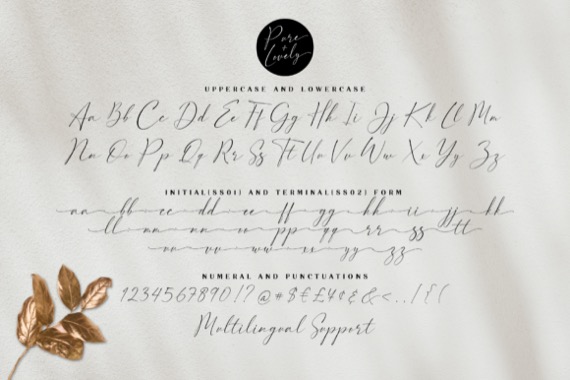 Pure
+
Lovely
UPPERCASE AND LOWERCASE
Aa Bb Cc Dd Ee Ff Gg Hh Ii Jj Kk Ll Mm
Nn Oo Pp Qq Rr Ss Tt Uu Vv Ww Xx Yy Zz
INITIAL(SS01) AND TERMINAL(SS02) FORM
aa bb cc dd ee ff gg hh ii jj kk
ll mm nn oo pp qq rr ss tt
uu vv ww xx yy zz
NUMERAL AND PUNCTUATIONS
1234567890!?@#$€£¥¢&
Multilingual Support